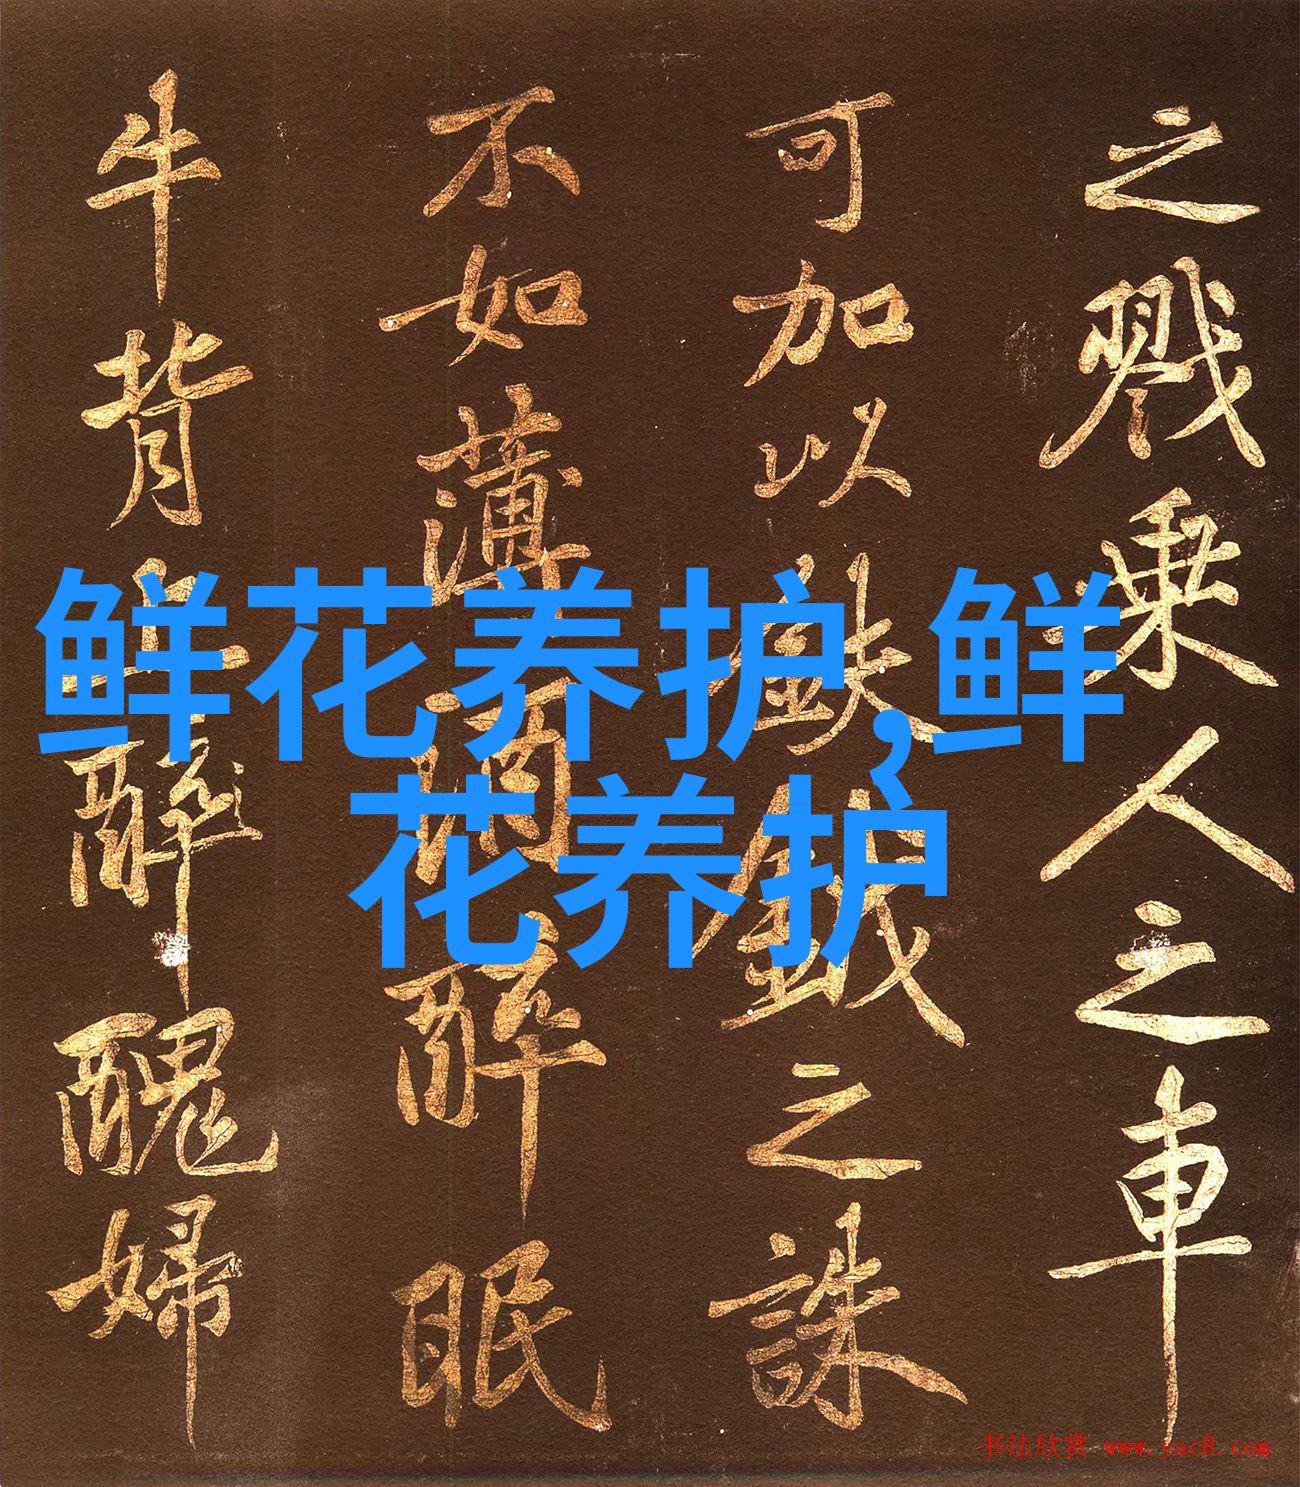 之戮乘人之車
可加以鈇鉞之誅
不如薄酒醉眠
牛背上醉醜婦
鲜花养护,鲜
花养护
书法欣赏 www.yac8.com